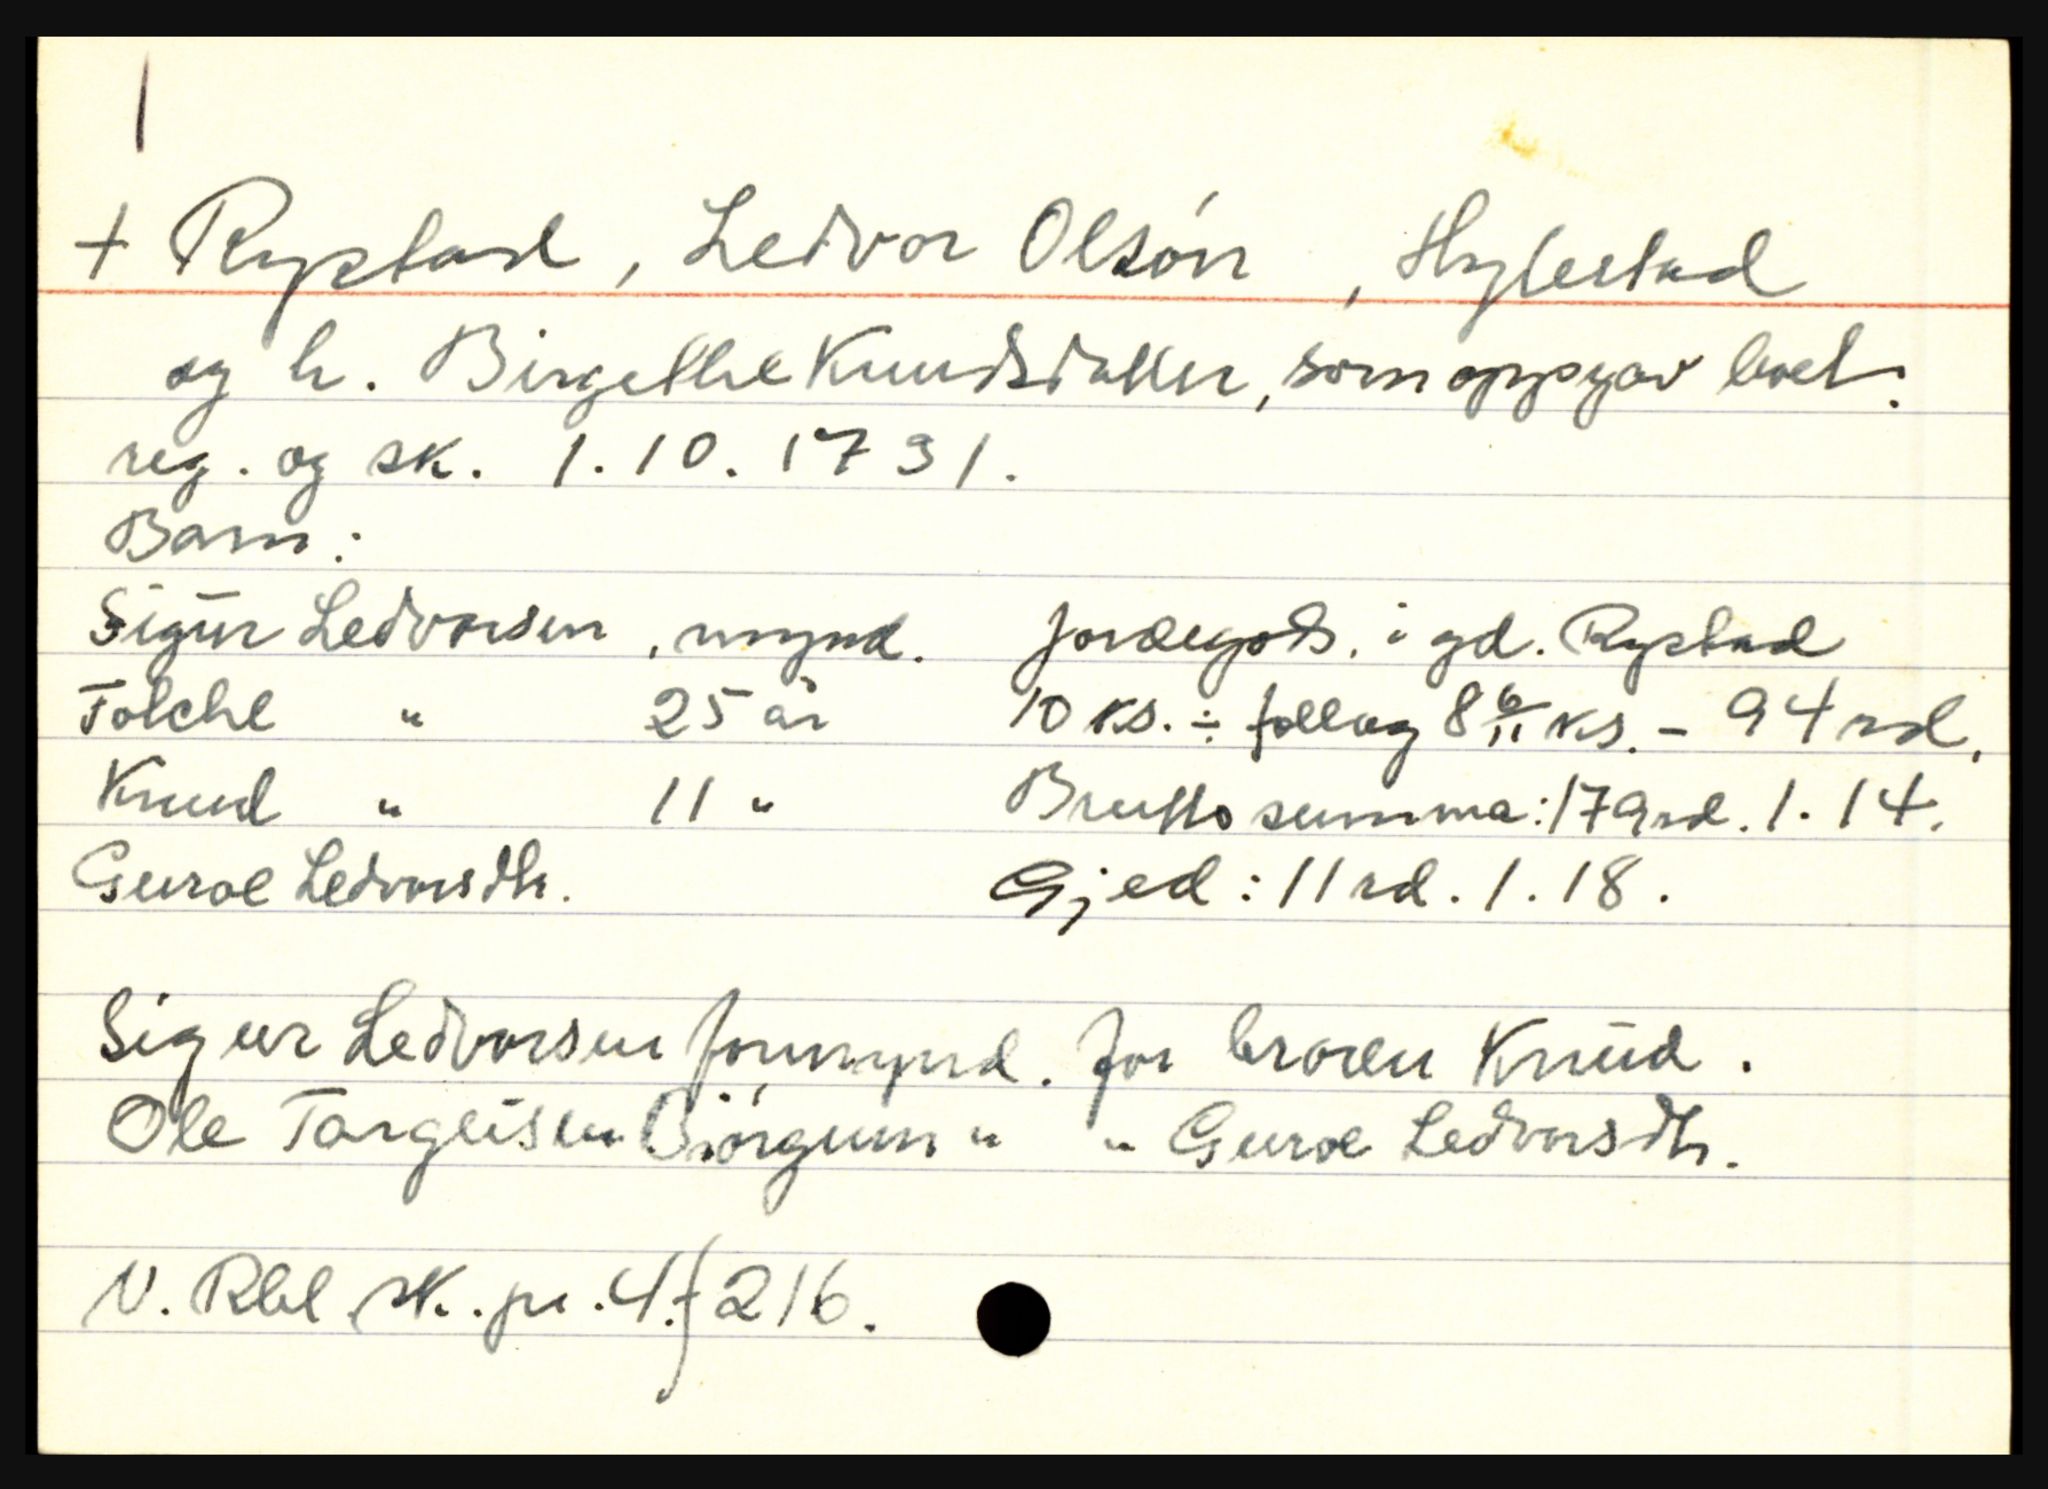 + Rystad, Ledvor Olsón, Hylestad
og h. Birgethe Knudsdatter, som oppgav boet.
reg. og sk. 1.10.1731.
Barn:
Sigur Ledvorsen, mynd. Jordegods. i gd. Rystad
Folche " 25 år 10 ks. ÷ follog 8 6/11 ks. - 94 rd.
Knud " 11 " Brutto summa: 179 rd. 1. 14.
Guroe Ledvorsdtr. Gjed: 11 rd. 1. 18.
Sigur Ledvorsen formynd. for broren Knud.
Ole Targeisen Biórgum " " Guroe Ledvorsdtr.
N. Rbl. sk. pr. 4. f 216.